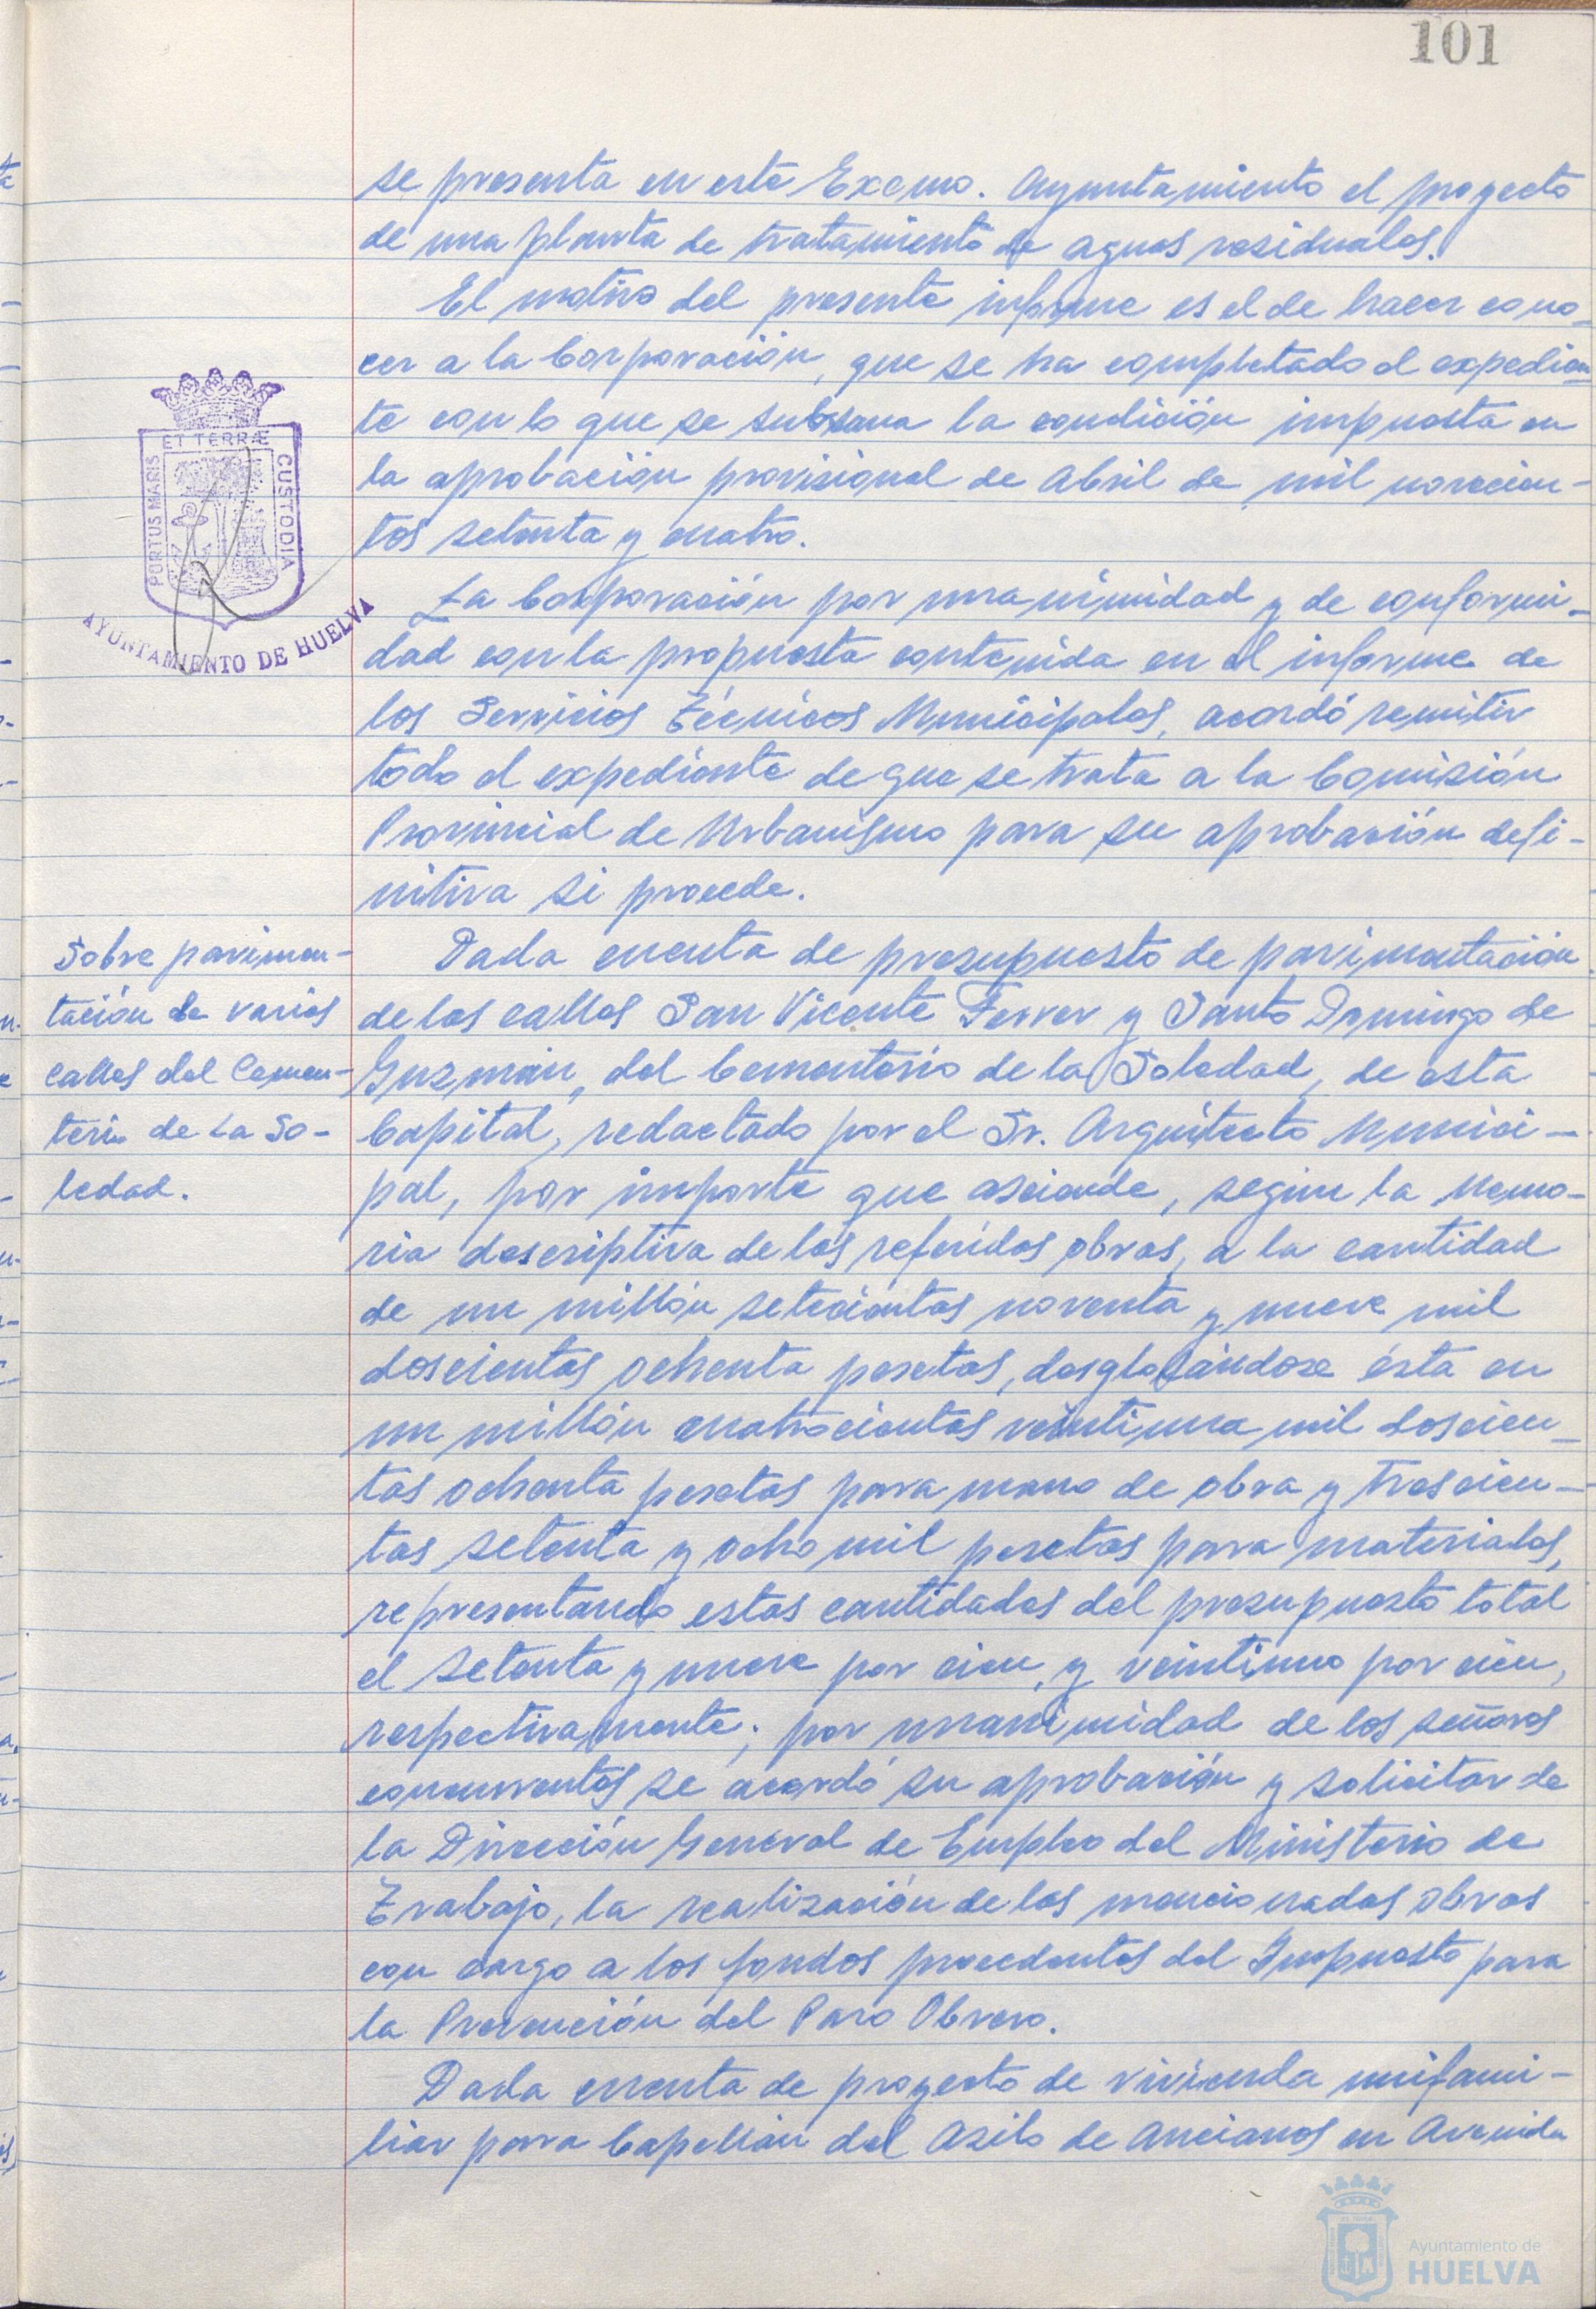 101
se presenta en este Excmo. Ayuntamiento el proyecto
de una planta de tratamiento de aguas residuales.
El motivo del presente informe es el de hacer cono-
cer a la Corporación, que se ha completado el expedien-
te con lo que se subsana la condición impuesta en
la aprobación provisional de Abril de mil novecien-
tos setenta y cuatro.
La Corporación por unanimidad y de conformi-
dad con la propuesta contenida en el informe de
los Servicios Técnicos Municipales, acordó remitir
todo el expediente de que se trata a la Comisión
Provincial de Urbanismo para su aprobación defi-
nitiva si procede.
ET TERRÆ
PORTUS MARIS
CUSTODIA
AYUNTAMIENTO DE HUELVA
Sobre pavimen-
tación de varias
calles del Cemen-
terio de La So-
ledad.
Dada cuenta de presupuesto de pavimentación
de las calles San Vicente Ferrer y Santo Domingo de
Guzmán, del Cementerio de la Soledad, de esta
Capital, redactado por el Sr. Arquitecto Munici-
pal, por importe que asciende, según la Memo-
ria descriptiva de las referidas obras, a la cantidad
de un millón setecientas noventa y nueve mil
doscientas ochenta pesetas, desglosándose ésta en
un millón cuatrocientas veintiuna mil doscien-
tas ochenta pesetas para mano de obra y trescien-
tas setenta y ocho mil pesetas para materiales,
representando estas cantidades del presupuesto total
el setenta y nueve por cien, y veintiuno por cien,
respectivamente; por unanimidad de los señores
concurrentes se acordó su aprobación y solicitar de
la Dirección General de Empleo del Ministerio de
Trabajo, la realización de las mencionadas obras
con cargo a los fondos procedentes del Impuesto para
la Prevención del Paro Obrero.
Dada cuenta de proyecto de vivienda unifami-
liar para Capellán del Asilo de Ancianos en Avenida
Ayuntamiento de
HUELVA